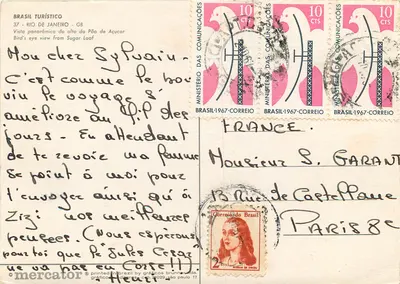 BRASIL TURÍSTICO
37 - RIO DE JANEIRO - GB
Vista panorâmica do alto do Pão de Açucar
Bird's eye view from Sugar Loaf
Mon cher Sylvain -
C'est comme le bon
vin, le voyage s'
améliore au fil des
jours - En attendant
de te revoir ma femme
se joint à moi pour
t'envoyer ainsi qu'à
Zizi nos meilleures
pensées. (Nous espérons
pour toi que le "Jules César"
ne va pas en Corse!!!).
Henri
10
CTS
MINISTÉRIO DAS COMUNICAÇÕES
BRASIL·1967-CORREIO
10
CTS
MINISTÉRIO DAS COMUNICAÇÕES
BRASIL·1967-CORREIO
10
CTS
MINISTÉRIO DAS COMUNICAÇÕES
BRASIL·1967-CORREIO
FRANCE.
Monsieur S. GARANT
13 Rue de Castellane
PARIS 8e
Brasil
mercator